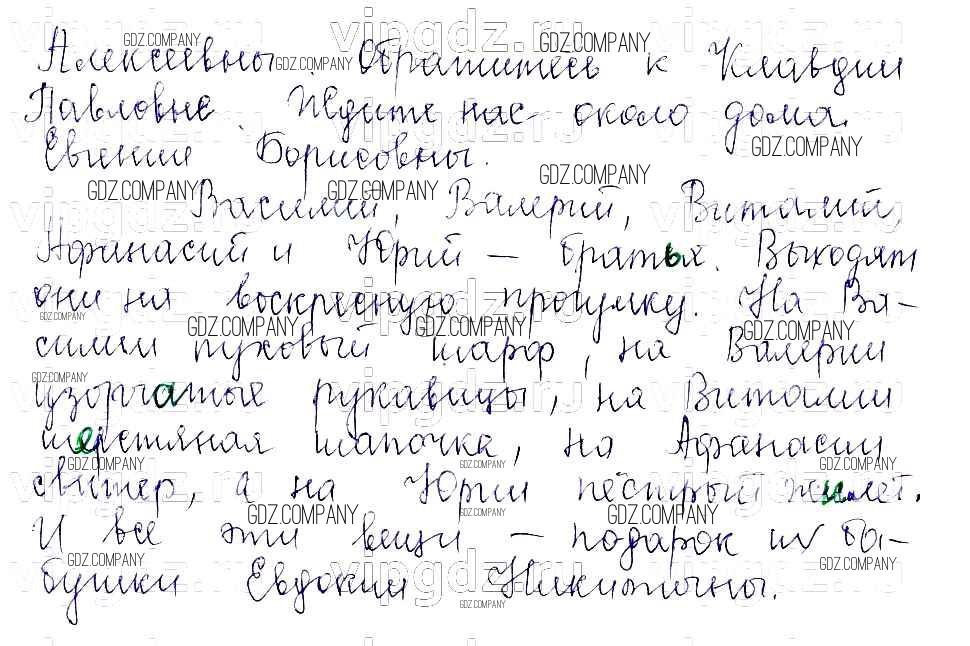 Алексеевны. Обратитесь к Клавдии
Павловне. Ждите нас около дома
Евгении Борисовны.
Василий, Валерий, Виталий,
Афанасий и Юрий — братья. Выходят
они на воскресную прогулку. На Ва-
силии пуховый шарф, на Валерии
узорчатые рукавицы, на Виталии
шерстяная шапочка, на Афанасии
свитер, а на Юрии пёстрый жилет.
И все эти вещи — подарок их ба-
бушки Евдокии Никитичны.
vipgdz.ru
GDZ.COMPANY